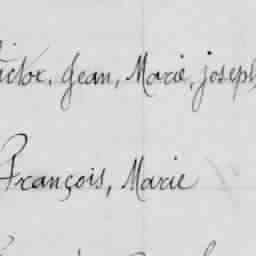 Victor, Jean, Marie, joseph
François, Marie